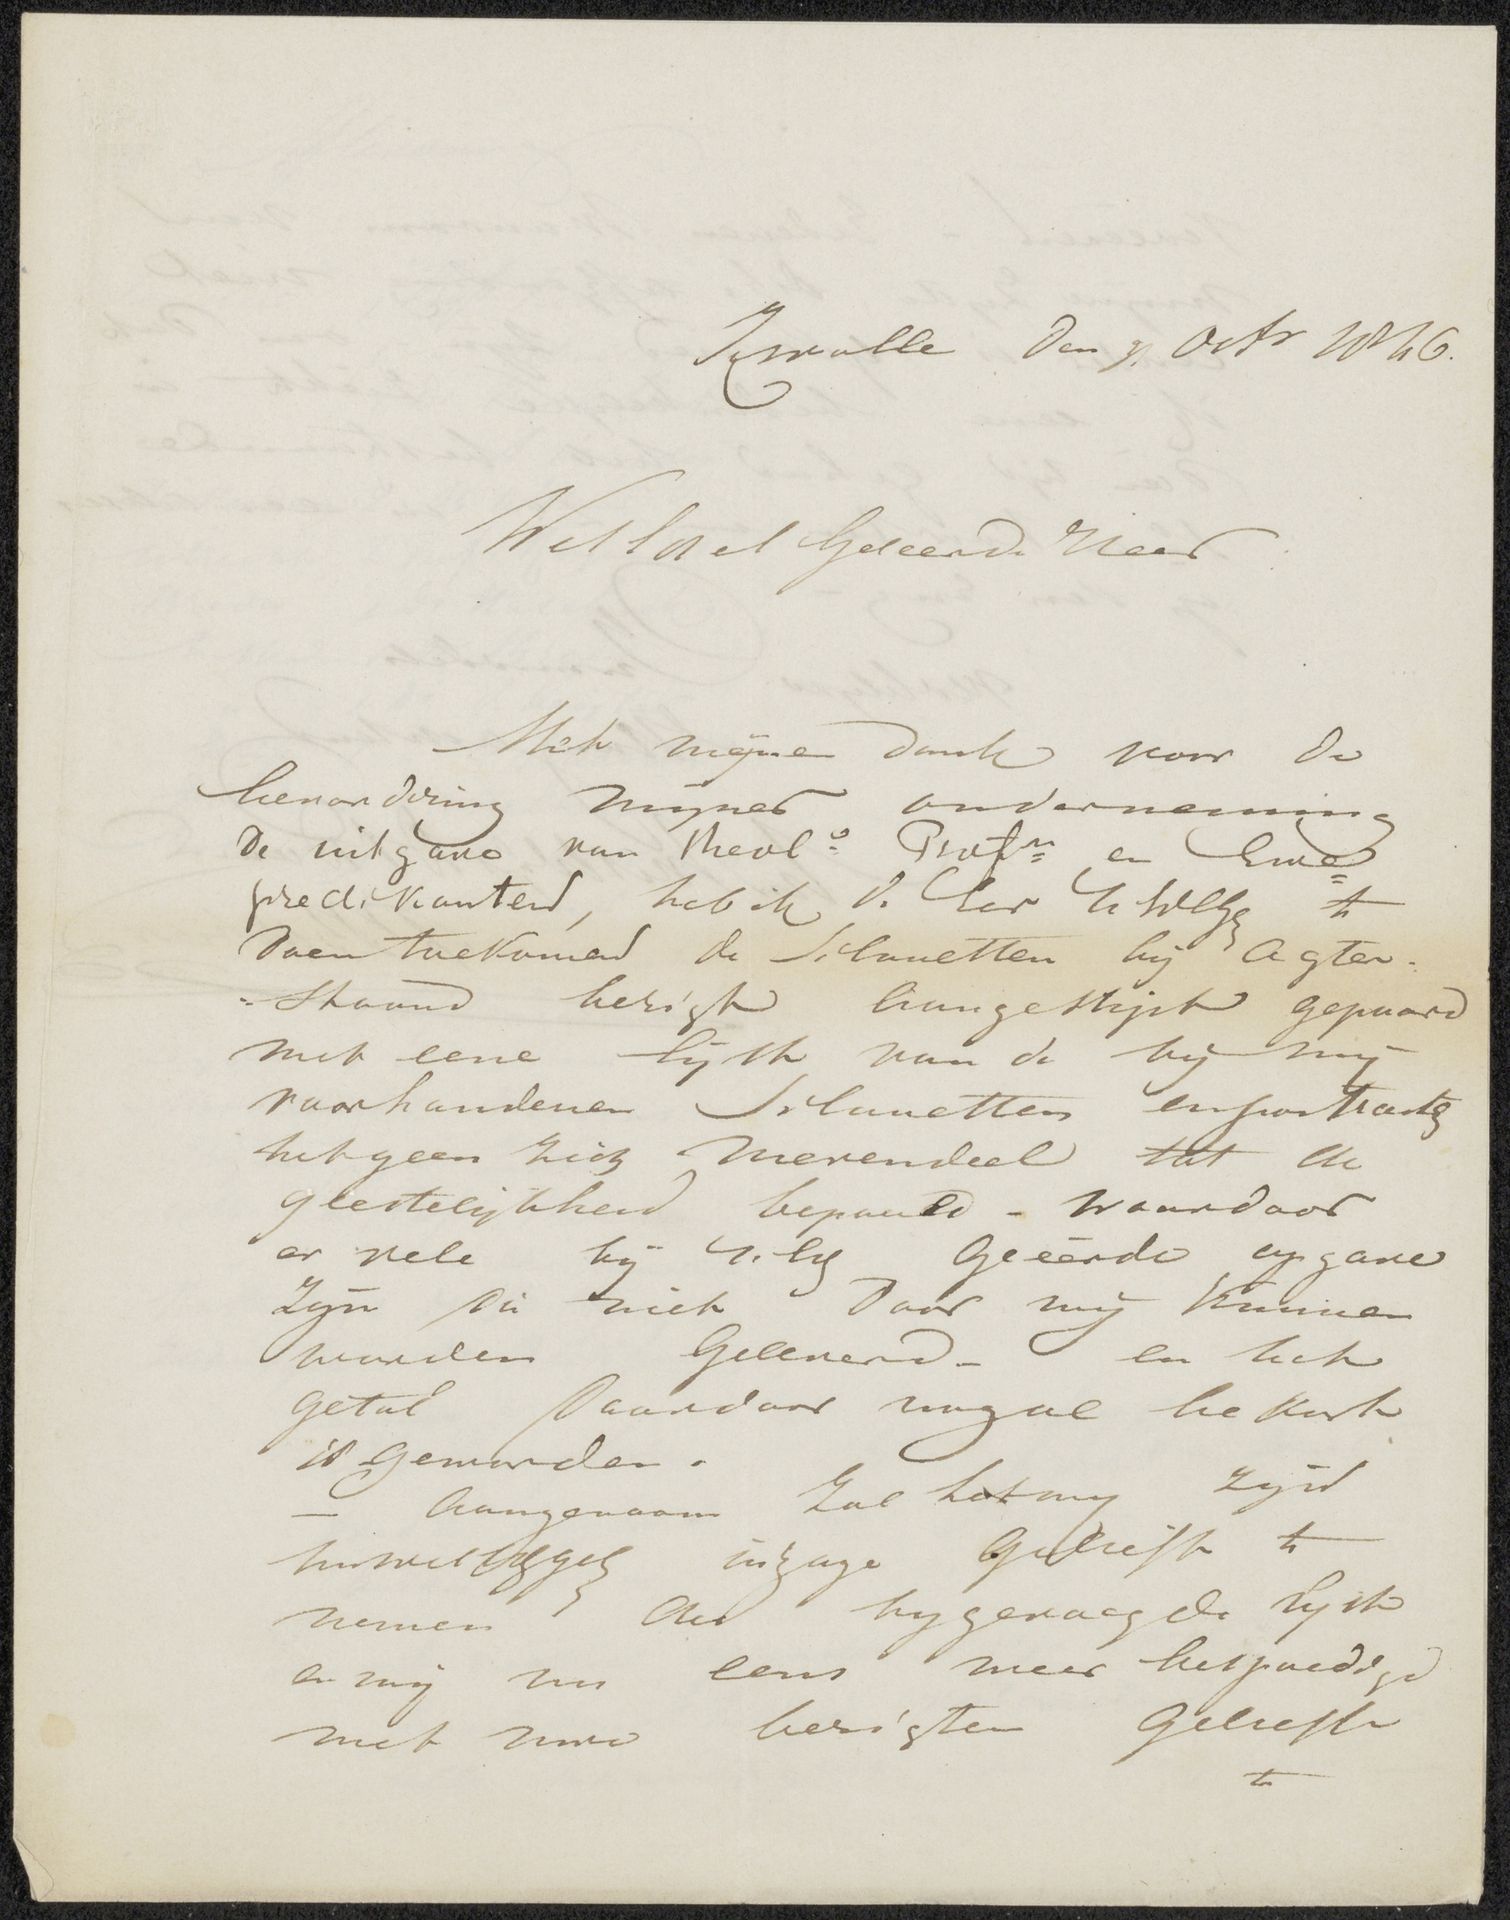 Zwolle den 9 Octr 1846.
Wel Edel Geleerde Heer
Met mijnen dank voor de
bevordering mijner onderneming
de uitgave van Theol: Profn en Eme
predikanten, heb ik de Eer te
doen toekomen de Silouetten bij Agter-
-staand berigt aangestipt gepaard
met eene lijst van de bij mij
voorhandenen Silouetten en portraits
het geen zich merendeel tot de
geestelijkheid bepaald - waardoor
er vele bij Geëerde opgave
zijn die niet door mij kunnen
worden Geleverd - en het
getal daardoor nog al bekort
is geworden.
- Aangenaam zal het mij zijn
inzage gelieft te
nemen der bygevoegde lyst
en mij nu eens meer bespoedigd
met uwe berigten Gelieft
te